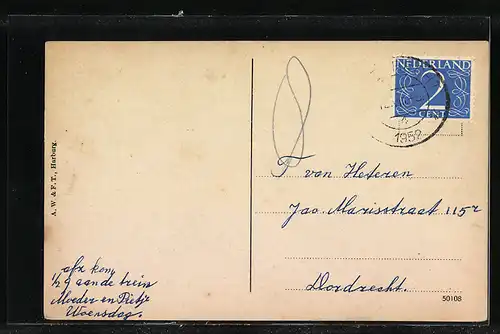 NEDERLAND
2
CENT
1952
A. W. & F. T., Harburg.
F van Heteren
Jac. Marisstraat 115 r
Dordrecht.
afz kom
1/2 9 aan de trein
Moeder en Pietje
Woensdag.
50108